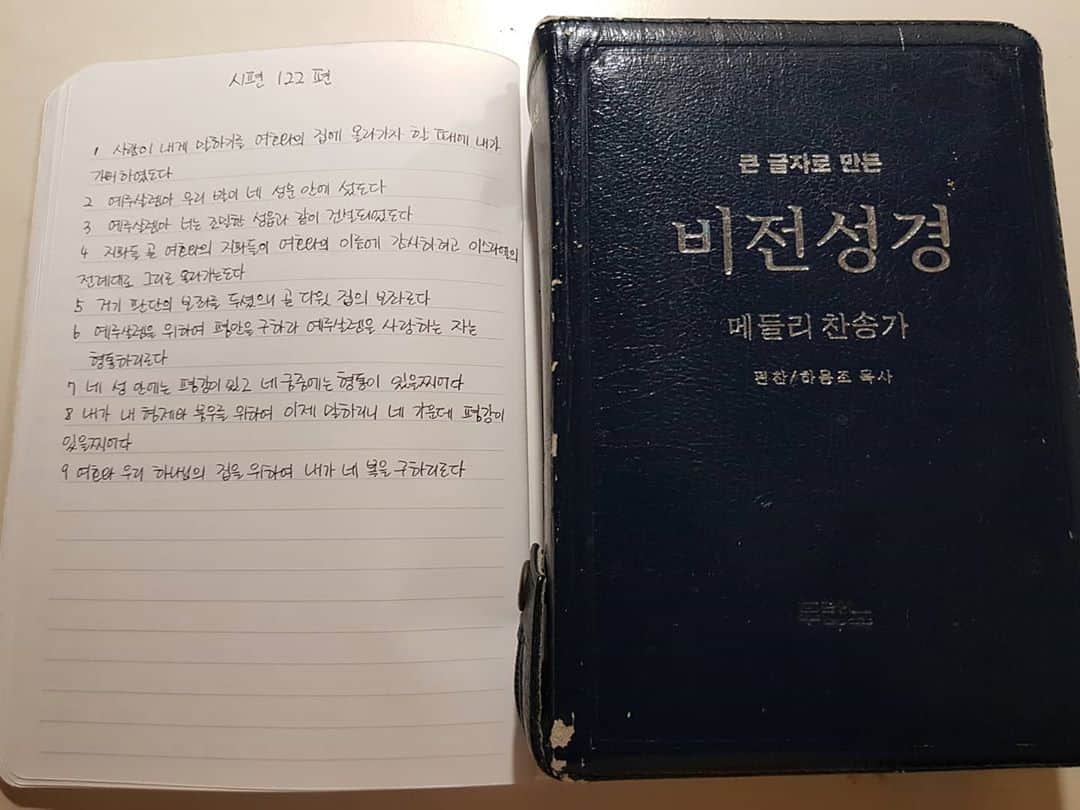 시편 122 편
1 사람이 내게 말하기를 여호와의 집에 올라가자 할 때에 내가
기뻐하였도다
2 예루살렘아 우리 발이 네 성문 안에 섰도다
3 예루살렘아 너는 조밀한 성읍과 같이 건설되었도다
4 지파들 곧 여호와의 지파들이 여호와의 이름에 감사하려고 이스라엘의
전례대로 그리로 올라가는도다
5 거기 판단의 보좌를 두셨으니 곧 다윗 집의 보좌로다
6 예루살렘을 위하여 평안을 구하라 예루살렘을 사랑하는 자는
형통하리로다
7 네 성 안에는 평강이 있고 네 궁중에는 형통이 있을찌어다
8 내가 내 형제와 붕우를 위하여 이제 말하리니 네 가운데 평강이
있을찌어다
9 여호와 우리 하나님의 집을 위하여 내가 네 복을 구하리로다
큰 글자로 만든
비전성경
메들리 찬송가
편찬/하용조 목사
두란노